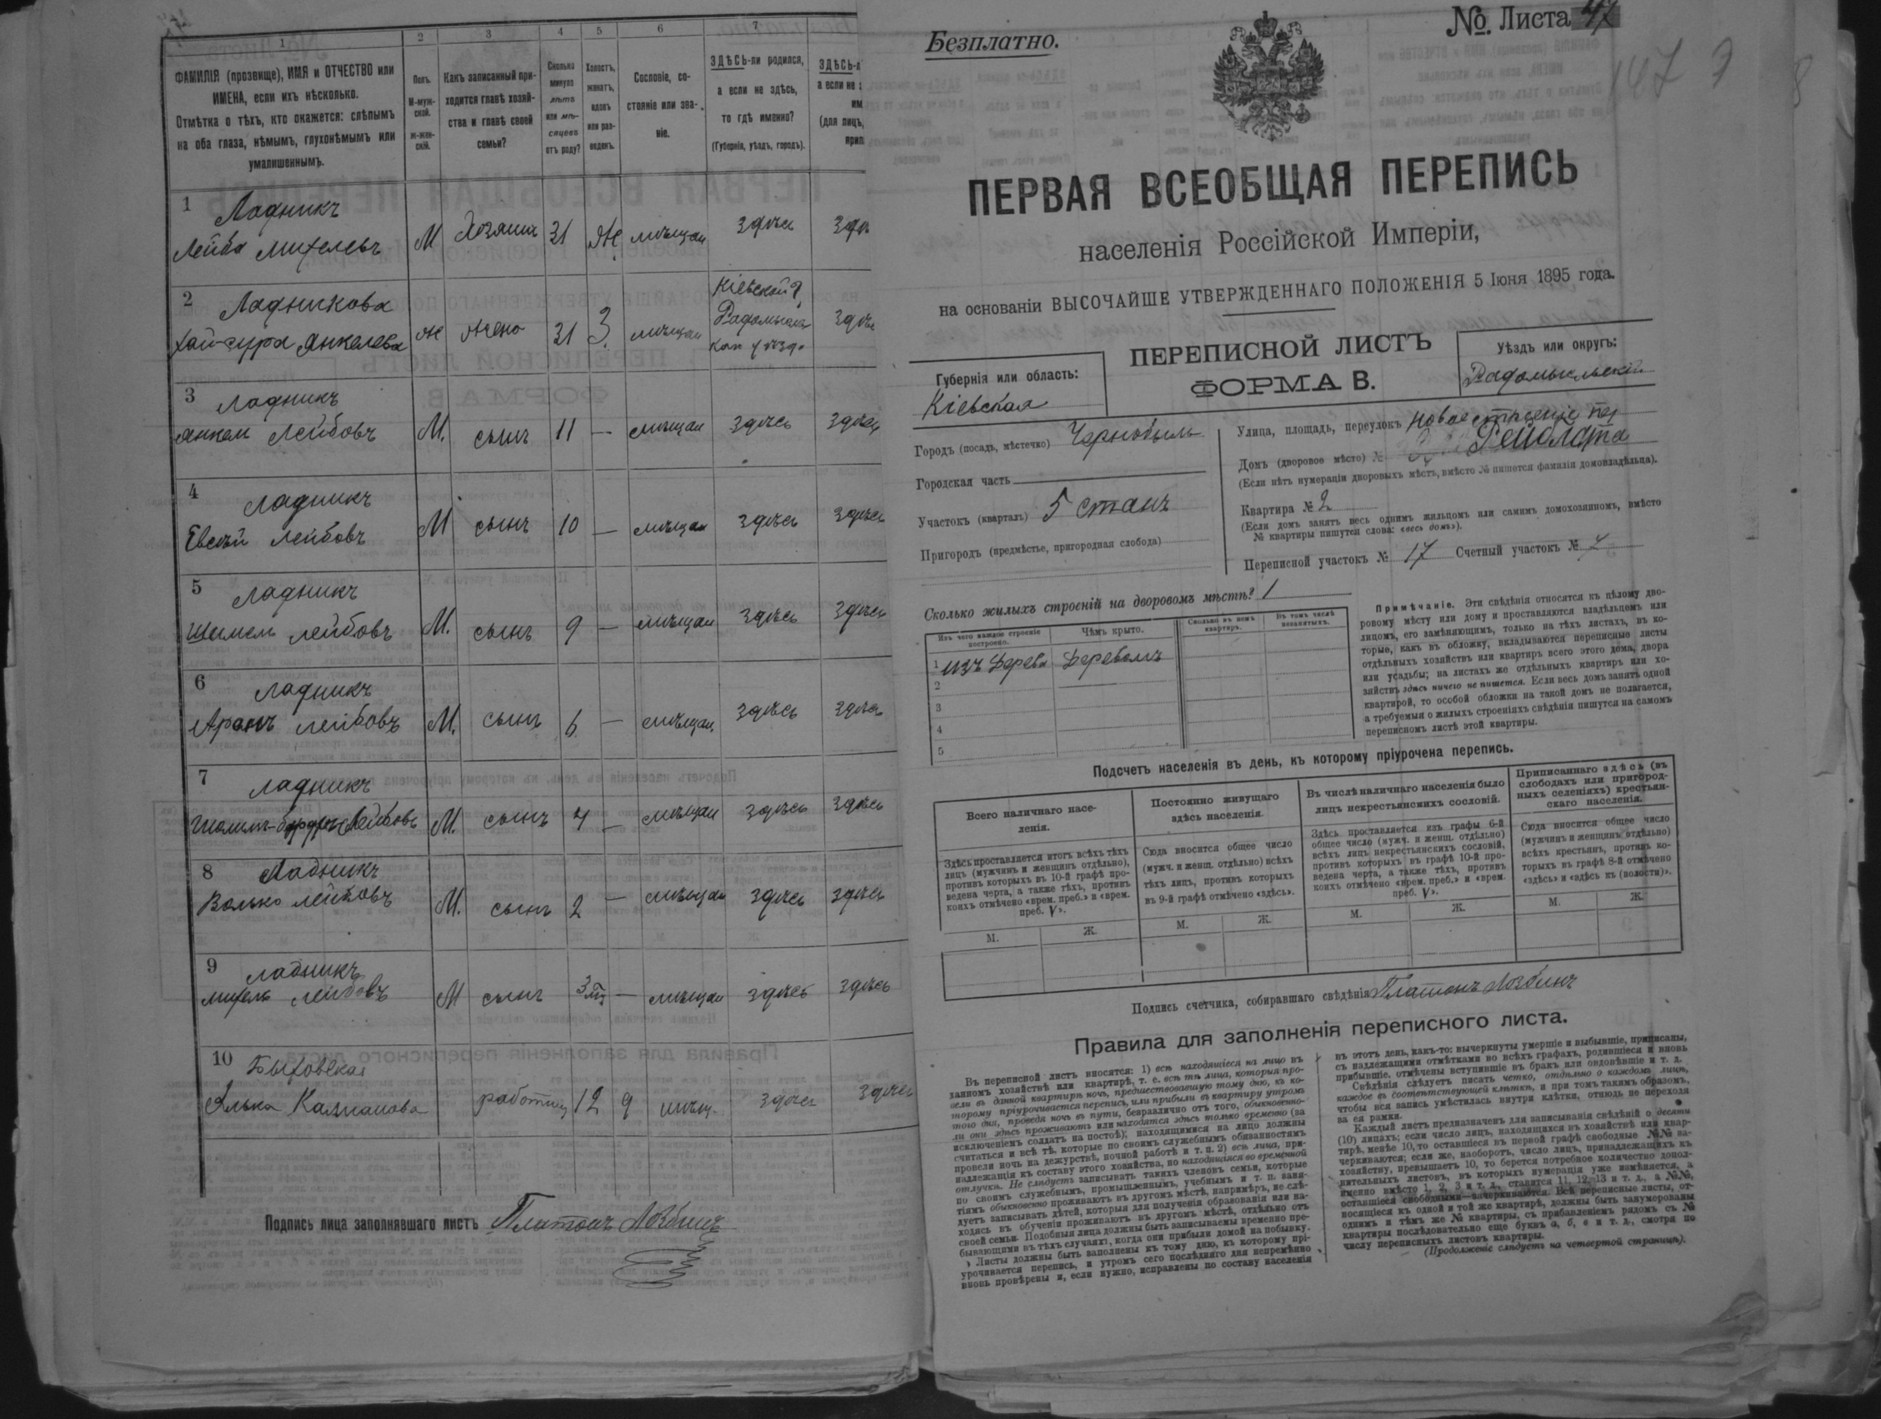 1
2
3
4
5
6
7
ФАМИЛІЯ (прозвище), ИМЯ и ОТЧЕСТВО или
ИМЕНА, если ихъ нѣсколько.
Отмѣтка о тѣхъ, кто окажется: слѣпымъ
на оба глаза, нѣмымъ, глухонѣмымъ или
умалишеннымъ.
Полъ.
М-муж-
ской.
Ж-жен-
скій.
Какъ записанный при-
ходится главѣ хозяй-
ства и главѣ своей
семьи?
Сколько
минуло
лѣтъ
или мѣ-
сяцевъ
отъ роду?
Холостъ,
женатъ,
вдовъ
или раз-
веденъ.
Сословіе, со-
стояніе или зва-
ніе.
ЗДѢСЬ-ли родился,
а если не здѣсь,
то гдѣ именно?
(Губернія, уѣздъ, городъ).
1 Ладникъ
Лейба Михелевъ М Хозяинъ 31 Ж мѣщан здѣсь
2 Ладникова
Хая-сура Янкелева Ж жена 31 З. мѣщан Кіевской г.
3 Ладникъ
Янкель Лейбовъ М. сынъ 11 — мѣщан здѣсь здѣсь
4 Ладникъ
Евсѣй Лейбовъ М сынъ 10 — мѣщан здѣсь здѣсь
5 Ладникъ
Шемель Лейбовъ М. сынъ 9 — мѣщан здѣсь здѣсь
6 Ладникъ
Аронъ Лейбовъ М. сынъ 6 — мѣщан здѣсь здѣсь
7 Ладникъ
Лейбовъ М. сынъ 4 — мѣщан здѣсь здѣсь
8 Ладникъ
Волько Лейбовъ М. сынъ 2 — мѣщан здѣсь здѣсь
9 Ладникъ
Михель Лейбовъ М сынъ 3 — мѣщан здѣсь здѣсь
10 Быховская
Элька Калманова работниц 12 мѣщ. здѣсь здѣсь
Подпись лица заполнявшаго листъ Платонъ
Безплатно.
№ Листа 47
147
ПЕРВАЯ ВСЕОБЩАЯ ПЕРЕПИСЬ
населенія Россійской Имперіи,
на основаніи ВЫСОЧАЙШЕ УТВЕРЖДЕННАГО ПОЛОЖЕНІЯ 5 Іюня 1895 года.
ПЕРЕПИСНОЙ ЛИСТЪ
ФОРМА В.
Губернія или область:
Кіевская
Уѣздъ или округъ:
Радомысльскій
Городъ (посадъ, мѣстечко) Чернобыль
Городская часть
Участокъ (кварталъ) 5 станъ
Пригородъ (предмѣстье, пригородная слобода)
Улица, площадь, переулокъ Новое строеніе пер
Домъ (дворовое мѣсто) №
(Если нѣтъ нумераціи дворовыхъ мѣстъ, вмѣсто № пишется фамилія домовладѣльца).
Квартира № 2
(Если домъ занятъ весь однимъ жильцомъ или самимъ домохозяиномъ, вмѣсто
№ квартиры пишутся слова: «весь домъ»).
Переписной участокъ № 17 Счетный участокъ №
Сколько жилыхъ строеній на дворовомъ мѣстѣ? 1
Изъ чего каждое строеніе
построено.
Чѣмъ крыто.
Сколько въ немъ
квартиръ.
Въ томъ числѣ
незанятыхъ.
1 изъ Дерева Деревомъ
2
3
4
5
Примѣчаніе. Эти свѣдѣнія относятся къ цѣлому дво-
ровому мѣсту или дому и проставляются владѣльцемъ или
лицомъ, его замѣняющимъ, только на тѣхъ листахъ, въ ко-
торые, какъ въ обложку, вкладываются переписные листы
отдѣльныхъ хозяйствъ или квартиръ всего этого дома, двора
или усадьбы; на листахъ же отдѣльныхъ квартиръ или хо-
зяйствъ здѣсь ничего не пишется. Если весь домъ занятъ одной
квартирой, то особой обложки на такой домъ не полагается,
а требуемыя о жилыхъ строеніяхъ свѣдѣнія пишутся на самомъ
переписномъ листѣ этой квартиры.
Подсчетъ населенія въ день, къ которому пріурочена перепись.
Всего наличнаго насе-
ленія.
Постоянно живущаго
здѣсь населенія.
Въ числѣ наличнаго населенія было
лицъ некрестьянскихъ сословій.
Приписаннаго здѣсь (въ
слободахъ или пригород-
ныхъ селеніяхъ) крестьян-
скаго населенія.
Здѣсь проставляется итогъ всѣхъ тѣхъ
лицъ (мужчинъ и женщинъ отдѣльно),
противъ которыхъ въ 10-й графѣ про-
ведена черта, а также тѣхъ, противъ
коихъ отмѣчено «врем. преб.» и «врем.
преб. V».
Сюда вносится общее число
(мужч. и женщ. отдѣльно) всѣхъ
тѣхъ лицъ, противъ которыхъ
въ 9-й графѣ отмѣчено «здѣсь».
Здѣсь проставляется изъ графы 6-й
общее число (мужч. и женщ. отдѣльно)
всѣхъ лицъ некрестьянскихъ сословій,
противъ которыхъ въ графѣ 10-й про-
ведена черта, а также тѣхъ, противъ
коихъ отмѣчено «врем. преб.» и «врем.
преб. V».
Сюда вносится общее число
(мужчинъ и женщинъ отдѣльно)
всѣхъ крестьянъ, противъ ко-
торыхъ въ графѣ 8-й отмѣчено
«здѣсь» и «здѣсь къ (волости)».
М. Ж. М. Ж. М. Ж. М. Ж.
Подпись счетчика, собиравшаго свѣдѣнія Платонъ
Правила для заполненія переписного листа.
Въ переписной листъ вносятся: 1) всѣ находящіеся на лицо въ
данномъ хозяйствѣ или квартирѣ, т. е. всѣ тѣ лица, которыя про-
вели въ данной квартирѣ ночь, предшествовавшую тому дню, къ ко-
торому пріурочивается перепись, или прибыли въ квартиру утромъ
того дня, проведя ночь въ пути, безразлично отъ того, обыкновенно-
ли они здѣсь проживаютъ или находятся здѣсь только временно (за
исключеніемъ солдатъ на постоѣ); находящимися на лицо должны
считаться и всѣ тѣ, которые по своимъ служебнымъ обязанностямъ
провели ночь на дежурствѣ, ночной работѣ и т. п. 2) всѣ лица, при-
надлежащія къ составу этого хозяйства, но находящіяся во временной
отлучкѣ. Не слѣдуетъ записывать такихъ членовъ семьи, которые
по своимъ служебнымъ, промышленнымъ, учебнымъ и т. п. заня-
тіямъ обыкновенно проживаютъ въ другомъ мѣстѣ, напримѣръ, не слѣ-
дуетъ записывать дѣтей, которыя для полученія образованія или на-
ходясь въ обученіи проживаютъ въ другомъ мѣстѣ, отдѣльно отъ
своей семьи. Подобныя лица должны быть записываемы временно пре-
бывающими въ тѣхъ случаяхъ, когда они прибыли домой на побывку.
Листы должны быть заполнены къ тому дню, къ которому прі-
урочивается перепись, и утромъ сего послѣдняго дня непремѣнно
вновь провѣрены и, если нужно, исправлены по составу населенія
въ этотъ день, какъ-то: вычеркнуты умершіе и выбывшіе, приписаны,
съ надлежащими отмѣтками во всѣхъ графахъ, родившіеся и вновь
прибывшіе, отмѣчены вступившіе въ бракъ или овдовѣвшіе и т. д.
Свѣдѣнія слѣдуетъ писать четко, отдѣльно о каждомъ лицѣ,
каждое въ соотвѣтствующей клѣткѣ, и при томъ такимъ образомъ,
чтобы вся запись умѣстилась внутри клѣтки, отнюдь не переходя
за ея рамки.
Каждый листъ предназначенъ для записыванія свѣдѣній о десяти
(10) лицахъ; если число лицъ, находящихся въ хозяйствѣ или квар-
тирѣ, менѣе 10, то оставшіеся въ первой графѣ свободные №№ за-
черкиваются; если же, наоборотъ, число лицъ, принадлежащихъ къ
хозяйству, превышаетъ 10, то берется потребное количество допол-
нительныхъ листовъ, въ которыхъ нумерація уже измѣняется, а
именно вмѣсто 1, 2, 3 и т. д., ставятся 11, 12, 13 и т. д., а №№,
оставшіеся свободными—зачеркиваются. Всѣ переписные листы, от-
носящіеся къ одной и той же квартирѣ, должны быть занумерованы
однимъ и тѣмъ же № квартиры, съ прибавленіемъ рядомъ съ №
квартиры послѣдовательно еще буквъ а, б, в и т. д., смотря по
числу переписныхъ листовъ квартиры.
(Продолженіе слѣдуетъ на четвертой страницѣ).